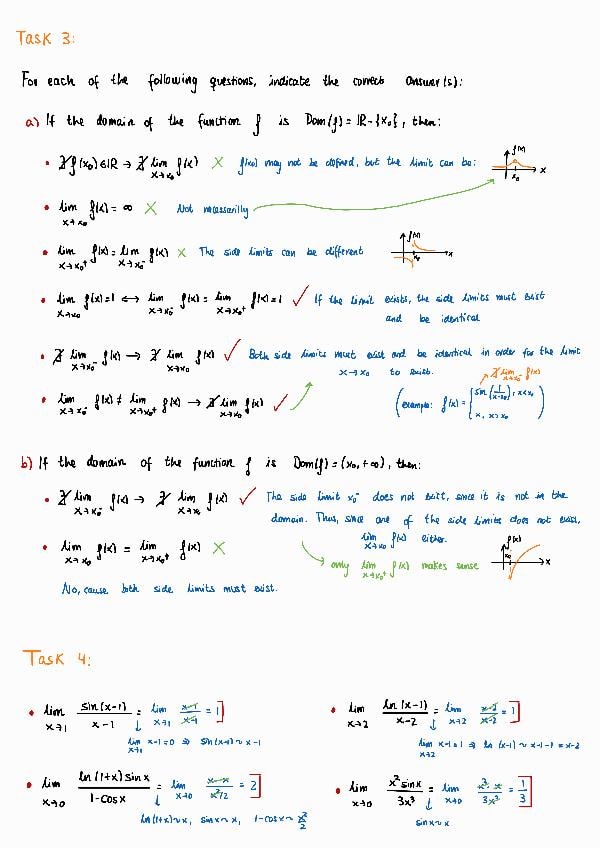 Task 3:
For each of the following questions, indicate the correct answer(s):
a) If the domain of the function f is Dom(f) = ℝ - {x₀}, then:
• ∄ f(x₀) ∈ ℝ → ∄ lim x→x₀ f(x) ✗ f(x₀) may not be defined, but the limit can be: f(x) x₀ x
• lim x→x₀ f(x) = ∞ ✗ Not necessarilly
• lim x→x₀⁺ f(x) = lim x→x₀⁻ f(x) ✗ The side limits can be different f(x) x₀ x
• lim x→x₀ f(x) = l ⟷ lim x→x₀⁻ f(x) = lim x→x₀⁺ f(x) = l ✓ If the limit exists, the side limits must exist
and be identical
• ∄ lim x→x₀⁻ f(x) → ∄ lim x→x₀ f(x) ✓ Both side limits must exist and be identical in order for the limit
x→x₀ to exist. ∄ lim x→x₀⁻ f(x)
• lim x→x₀⁻ f(x) ≠ lim x→x₀⁺ f(x) → ∄ lim x→x₀ f(x) ✓ (example: f(x) = { sin(1/(x-x₀)), x<x₀
x, x>x₀ )
b) If the domain of the function f is Dom(f) = (x₀, +∞), then:
• ∄ lim x→x₀⁻ f(x) → ∄ lim x→x₀ f(x) ✓ The side limit x₀⁻ does not exist, since it is not in the
domain. Thus, since one of the side limits does not exist,
lim x→x₀ f(x) either.
• lim x→x₀ f(x) = lim x→x₀⁺ f(x) ✗ f(x) x₀ x
only lim x→x₀⁺ f(x) makes sense
No, cause both side limits must exist.
Task 4:
• lim x→1 sin(x-1)/(x-1) = lim x→1 (x-1)/(x-1) = 1
lim x→1 x-1=0 ⇒ sin(x-1) ~ x-1
• lim x→2 ln(x-1)/(x-2) = lim x→2 (x-2)/(x-2) = 1
lim x→2 x-1=1 ⇒ ln(x-1) ~ x-1-1 = x-2
• lim x→0 ln(1+x) sin x/(1-cos x) = lim x→0 (x·x)/(x²/2) = 2
ln(1+x) ~ x, sin x ~ x, 1-cos x ~ x²/2
• lim x→0 x² sin x/3x³ = lim x→0 (x²·x)/3x³ = 1/3
sin x ~ x